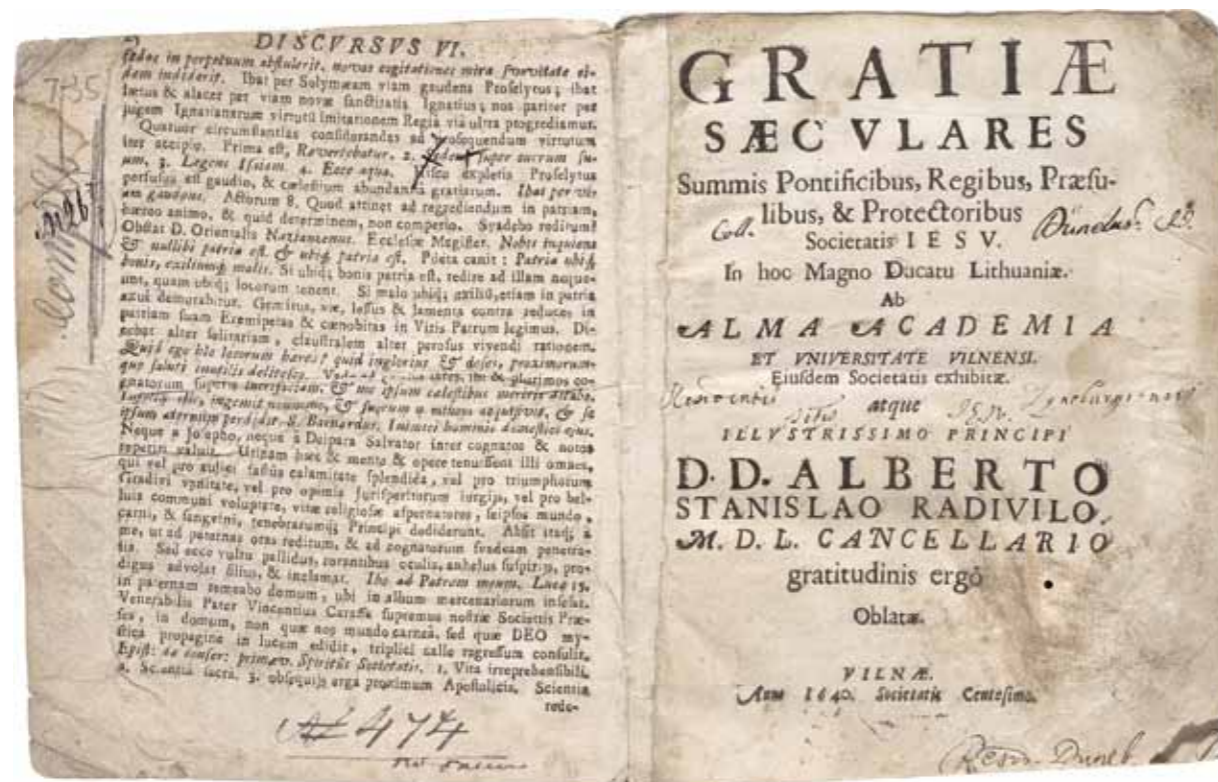 DISCVRSVS VI.
sedoc in perpetuum abstulerit, novas cogitationes mira suavitate ei-
dem indiderit. Ibat per Solymæam viam gaudens Proselytus; ibat
lætus & alacer per viam novæ sanctitatis Ignatius; nos pariter per
jugem Ignatianarum virtutũ imitationem Regia via ultra progrediamur.
Quatuor circumstantias considerandas ad prosequendum virtutum
iter accipio. Prima est, Revertebatur. 2. Sedens super currum su-
um. 3. Legens Isaiam. 4. Ecce aqua. expletis Proselytus
perfusus est gaudio, & cælestium abundantiâ gratiarum. Ibat per vi-
am gaudens. Actorum 8. Quod attinet ad regrediendum in patriam,
hæreo animo, & quid determinem, non comperio. Svadebo reditum?
Obstat D. Orientalis Nazianzenus. Ecclesiæ Magister. Nobis inquiens
& nullibi patria est, & ubiq; patria est. Poëta canit: Patria ubiq;
bonis, exiliumq; malis. Si ubiq; bonis patria est, redire ad illam neque-
unt, quam ubiq; locorum tenent. Si malo ubiq; exiliũ, etiam in patria
exul demorabitur. Gemitus, væ, lessus & lamenta contra reduces in
patriam suam Eremipetas & cœnobitas in Vitis Patrum legimus. Di-
cebat alter solitariam, claustralem alter perosus vivendi rationem.
Quid ego hic locorum hæreo? quid inglorius & deses, proximorum-
que saluti inutilis delitesco. ibi & plurimos co-
gnatorum superis & me ipsum cælestibus
& se
ipsum æternùm perdidit. S. Bernardus. Inimici hominis domestici ejus.
Neque a Josepho, neque à Deipara Salvator inter cognatos & notos
reperiri valuit. Utinam hæc & mente & opere tenuissent illi omnes,
qui vel pro aulici fastûs calamitate splendida, vel pro triumphorum
Gradivi vanitate, vel pro opimis Jurisperitorum iurgijs, vel pro bel-
luis communi voluptate, vitæ religiosæ aspernatores, seipsos mundo,
carni, & sangvini, tenebrarumq; Principi dediderunt. Absit itaq; a
me, ut ad paternas oras reditum, & ad cognatorum svadeam penetra-
lia. Sed ecce vultu pallidus, rorantibus oculis, anhelus suspirijs, pro-
digus advolat filius, & inclamat. Ibo ad Patrem meum. Lucæ 15.
in paternam remeabo domum, ubi in album mercenariorum inserar.
Venerabilis Pater Vincentius Caraffa supremus nostræ Societatis Præ-
ses, in domum, non quæ nos mundo carneâ, sed quæ DEO my-
stica propagine in lucem edidit, triplici calle regressum consulit.
Epist: de conser: primæv. Spiritûs Societatis. 1. Vita irreprehensibili.
2. Scientia sacra. 3. obsequijs erga proximum Apostolicis. Scientia
redo-
735
N26
474
GRATIÆ
SÆCVLARES
Summis Pontificibus, Regibus, Præsu-
libus, & Protectoribus
Coll. Societatis IESV.
In hoc Magno Ducatu Lithuaniæ.
Ab
ALMA ACADEMIA
ET VNIVERSITATE VILNENSI.
Eiusdem Societatis exhibitæ.
atque
ILLVSTRISSIMO PRINCIPI
D. D. ALBERTO
STANISLAO RADIVILO.
M. D. L. CANCELLARIO
gratitudinis ergò
Oblatæ.
VILNÆ.
Anno 1640. Societatis Centesimo.